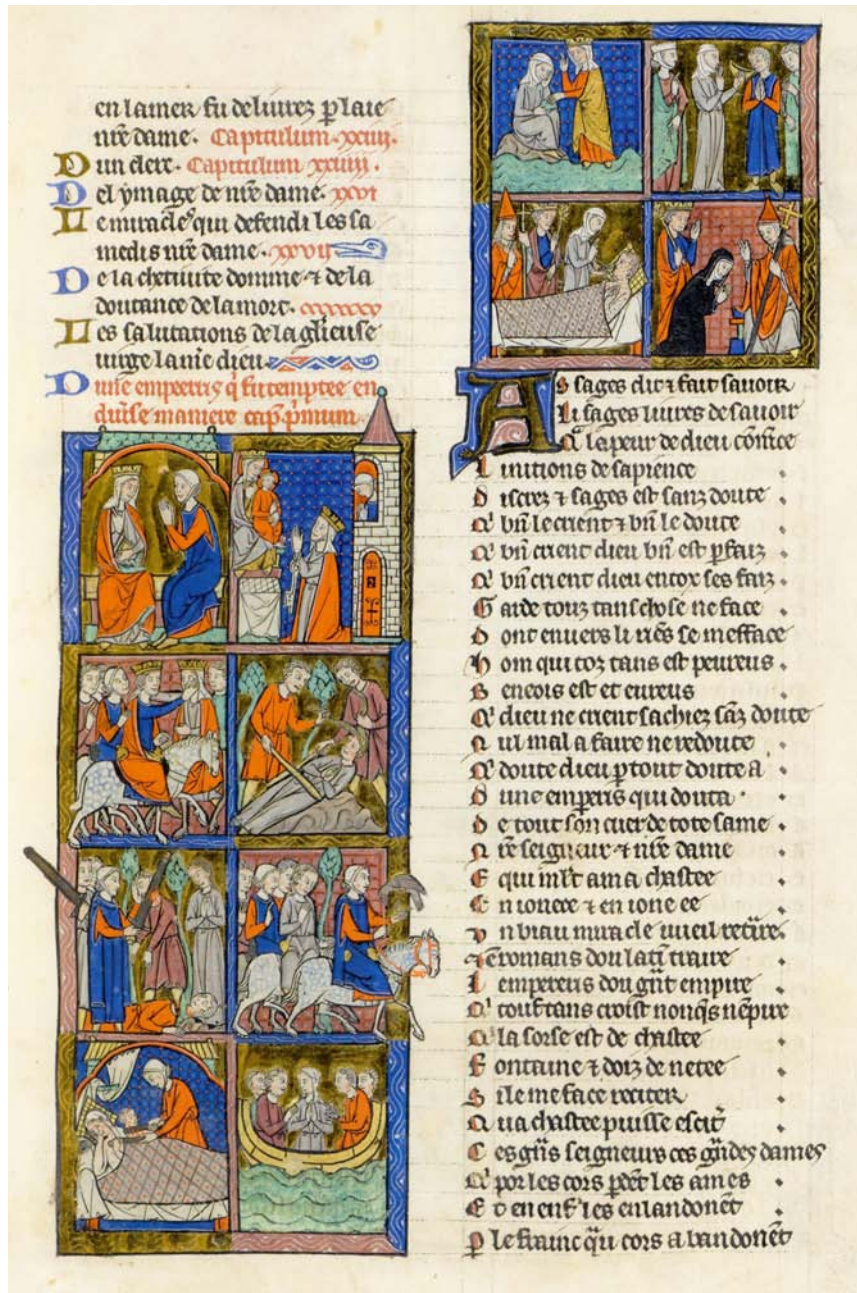 en la mer fu delivrez p laie
nr̃e dame. Capitulum .xxiij.
D un clerc. Capitulum xxiiij.
D el ymage de nr̃e dame. xxvi
L e miracle qui defendi les sa
medis nr̃e dame. xxvij
D e la chetivite domme ⁊ de la
doutance de la mort.
L es salutations de la glieuse
virge la mere dieu.
D une empeerris q̃ fu temptee en
diu̾se maniere cap. p̾mum
A s sages dit ⁊ fait savoir
Li sages livres de savoir
Q' la peur de dieu cõmce
L initions de sapience
D iscrez ⁊ sages est sanz doute
Q' bn̄ le crient ⁊ bn̄ le doute
Q' bn̄ crient dieu bn̄ est pfaiz
Q' bn̄ crient dieu en toz ses faiz
G arde touz tans chose ne face
D ont envers li riẽs se mefface
H om qui toz tans est peureus
B eneois est et eureus
Q' dieu ne crient sachiez sãz doute
N ul mal a faire ne redoute
Q' doute dieu ptout doute a
D une emperis qui douta
D e tout son cuer de tote same
N r̃e seigneur ⁊ nr̃e dame
E qui ml̃t ama chastee
E n ionece ⁊ en ione ee
V n biau miracle vueil retr̾re
⁊ ẽ romans dou latĩ traire
L empereris dou gñt empire
Q' touz tans croist nonq̃s nẽpire
Q' la sorse est de chastee
F ontaine ⁊ doiz de netee
S i le me face reciter
Q ua chastee puisse escit̾
C es gñs seigneurs ces gñdes dames
Q' por les cors pdẽt les ames
E t en enf̾ les enlandonẽt
P le frainc q̃u cors abandonẽt